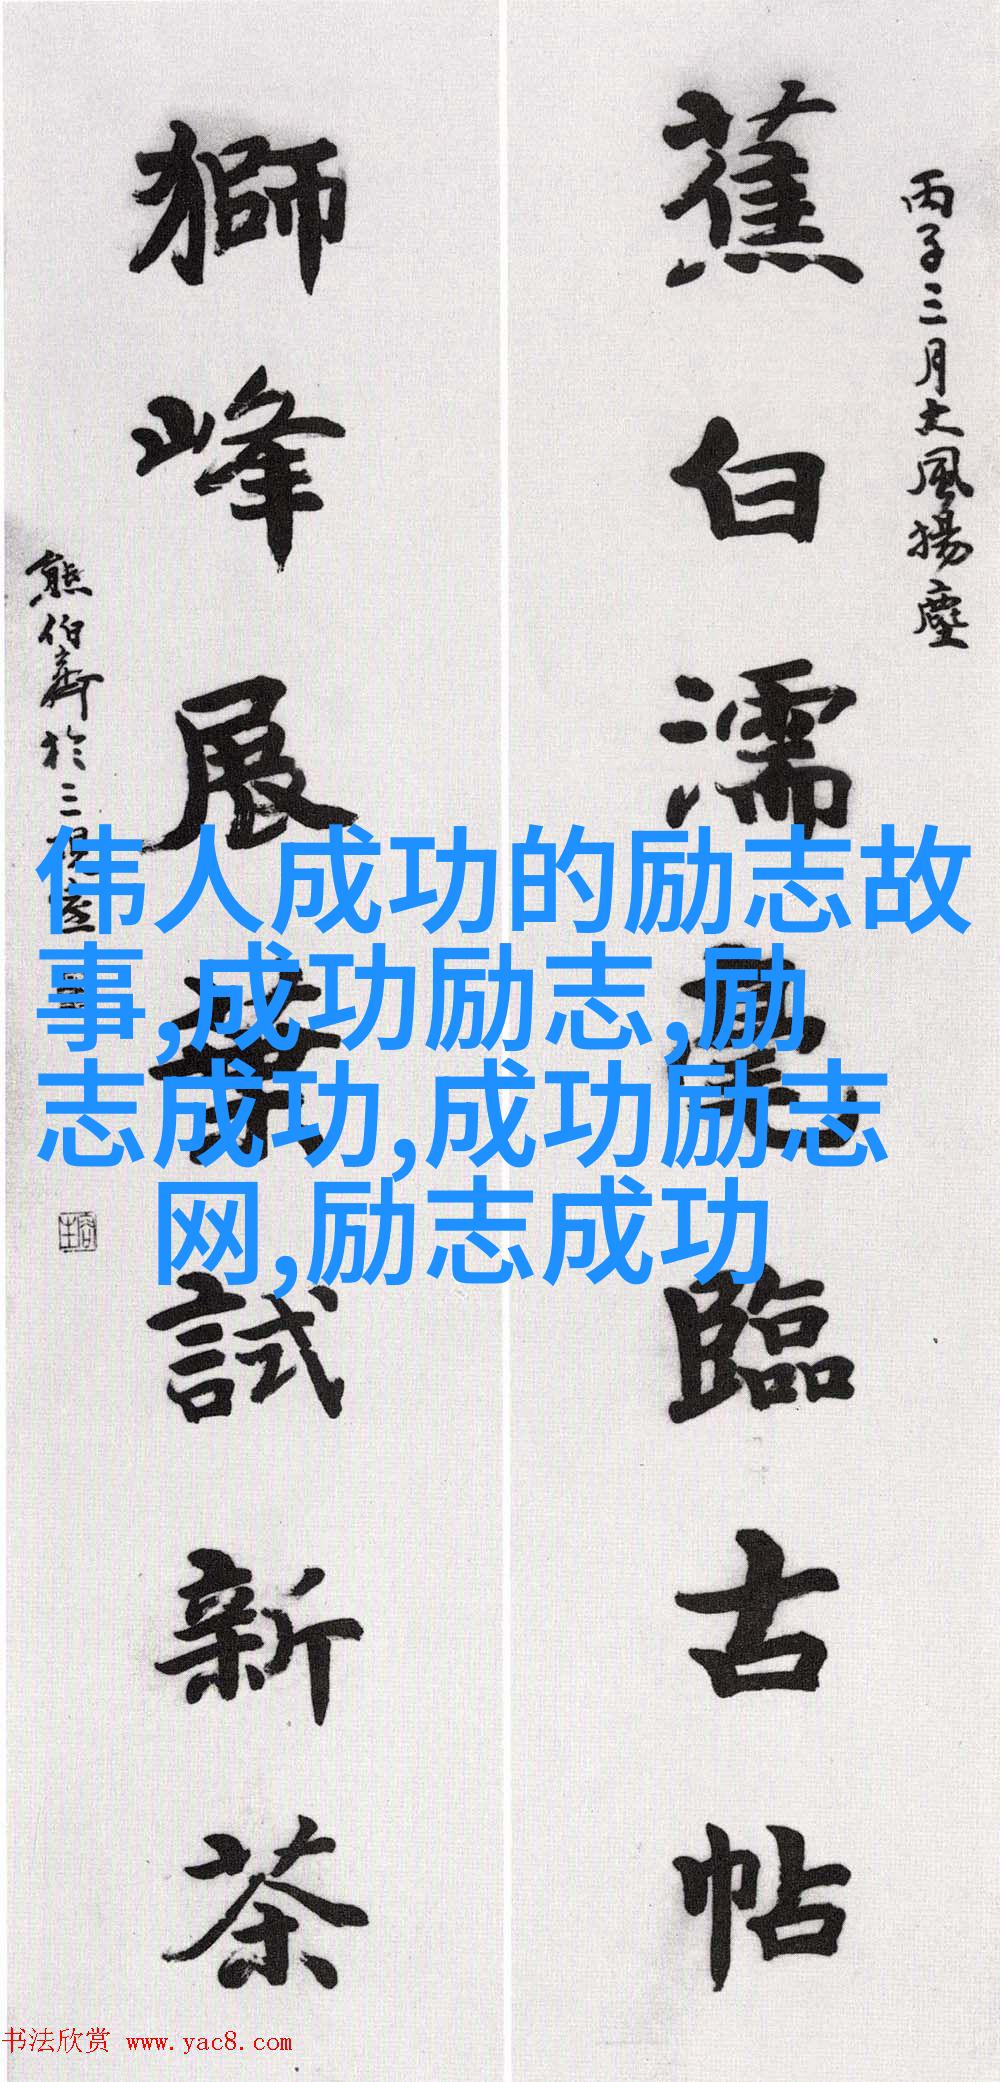 丙子三月大風揚塵
蕉白濡毫臨古帖
獅峰展葉試新茶
熊伯齊於三
伟人成功的励志故
事,成功励志,励
志成功,成功励志
网,励志成功
书法欣赏 www.yac8.com